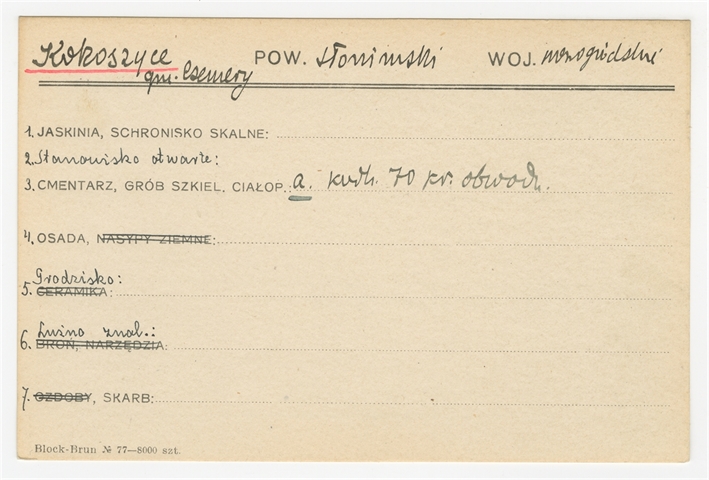 Kokoszyce POW. słonimski WOJ. nowogródzkie
gm. Czemery
1. JASKINIA, SCHRONISKO SKALNE:
2. Stanowisko otwarte:
3. CMENTARZ, GRÓB SZKIEL. CIAŁOP.: a. kurh. 70 kr. obwodu.
4. OSADA, NASYPY ZIEMNE:
Grodzisko:
5. CERAMIKA:
Luźno znal.:
6. BROŃ, NARZĘDZIA:
7. OZDOBY, SKARB:
Block-Brun № 77—8000 szt.